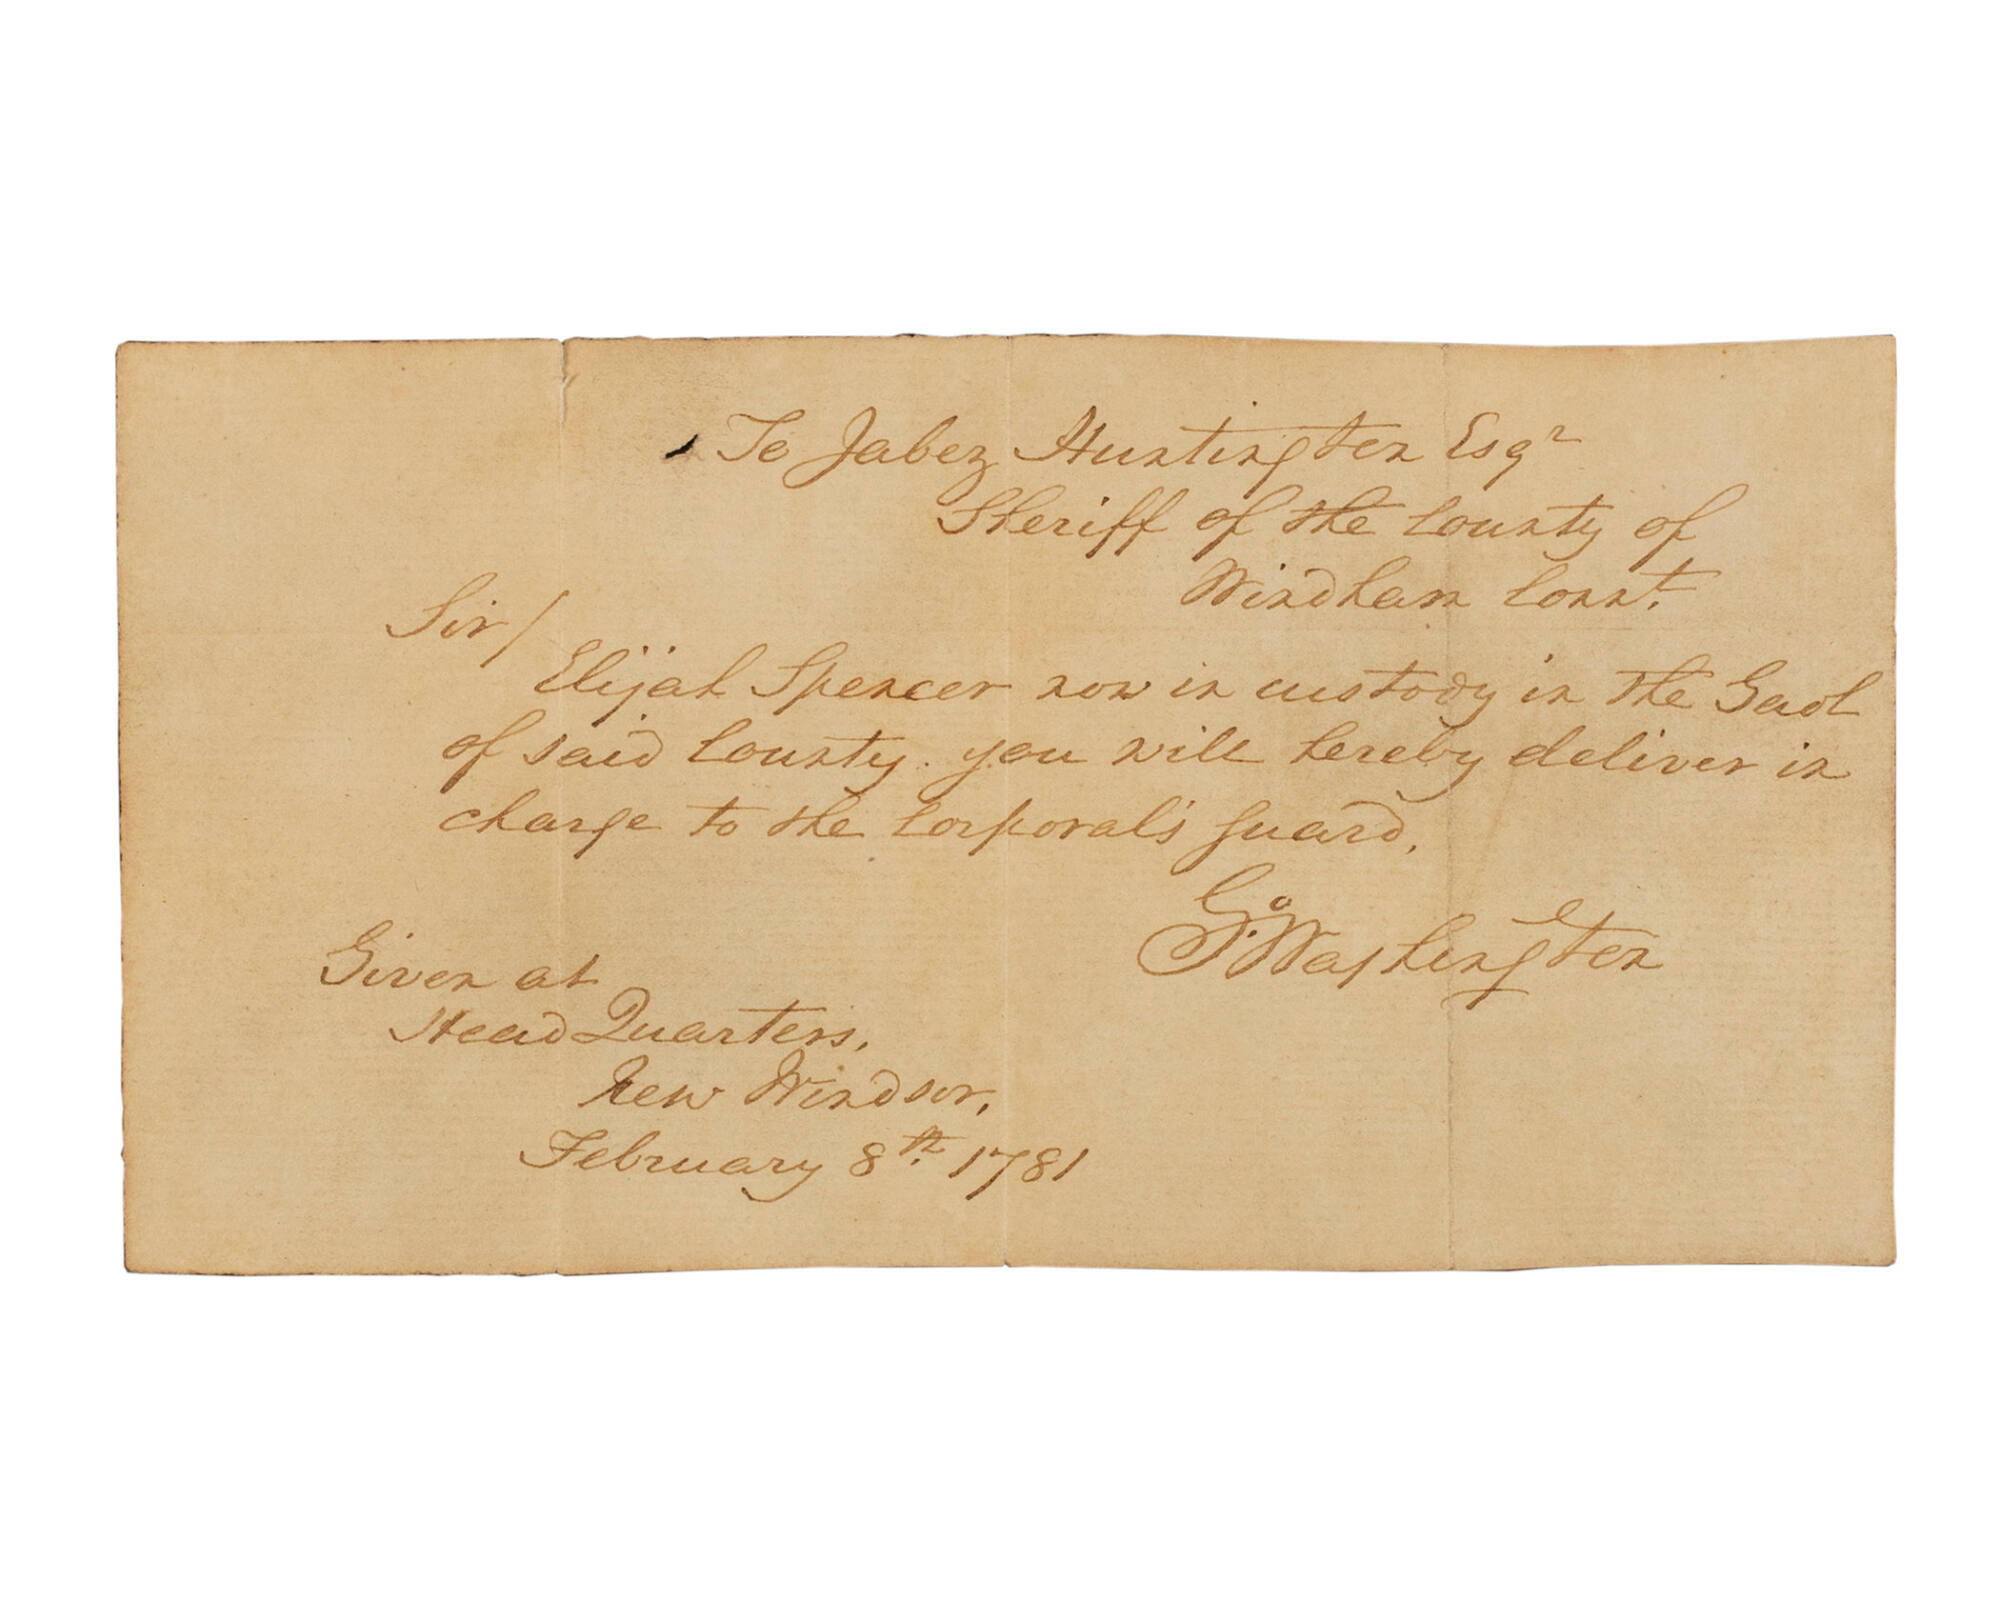 To Jabez Huntington Esqr
Sheriff of the County of
Windham Connt.
Sir/
Elijah Spencer now in custody in the Gaol
of said County. you will hereby deliver in
charge to the Corporal's guard.
Go. Washington
Given at
Head Quarters,
New Windsor,
February 8th. 1781